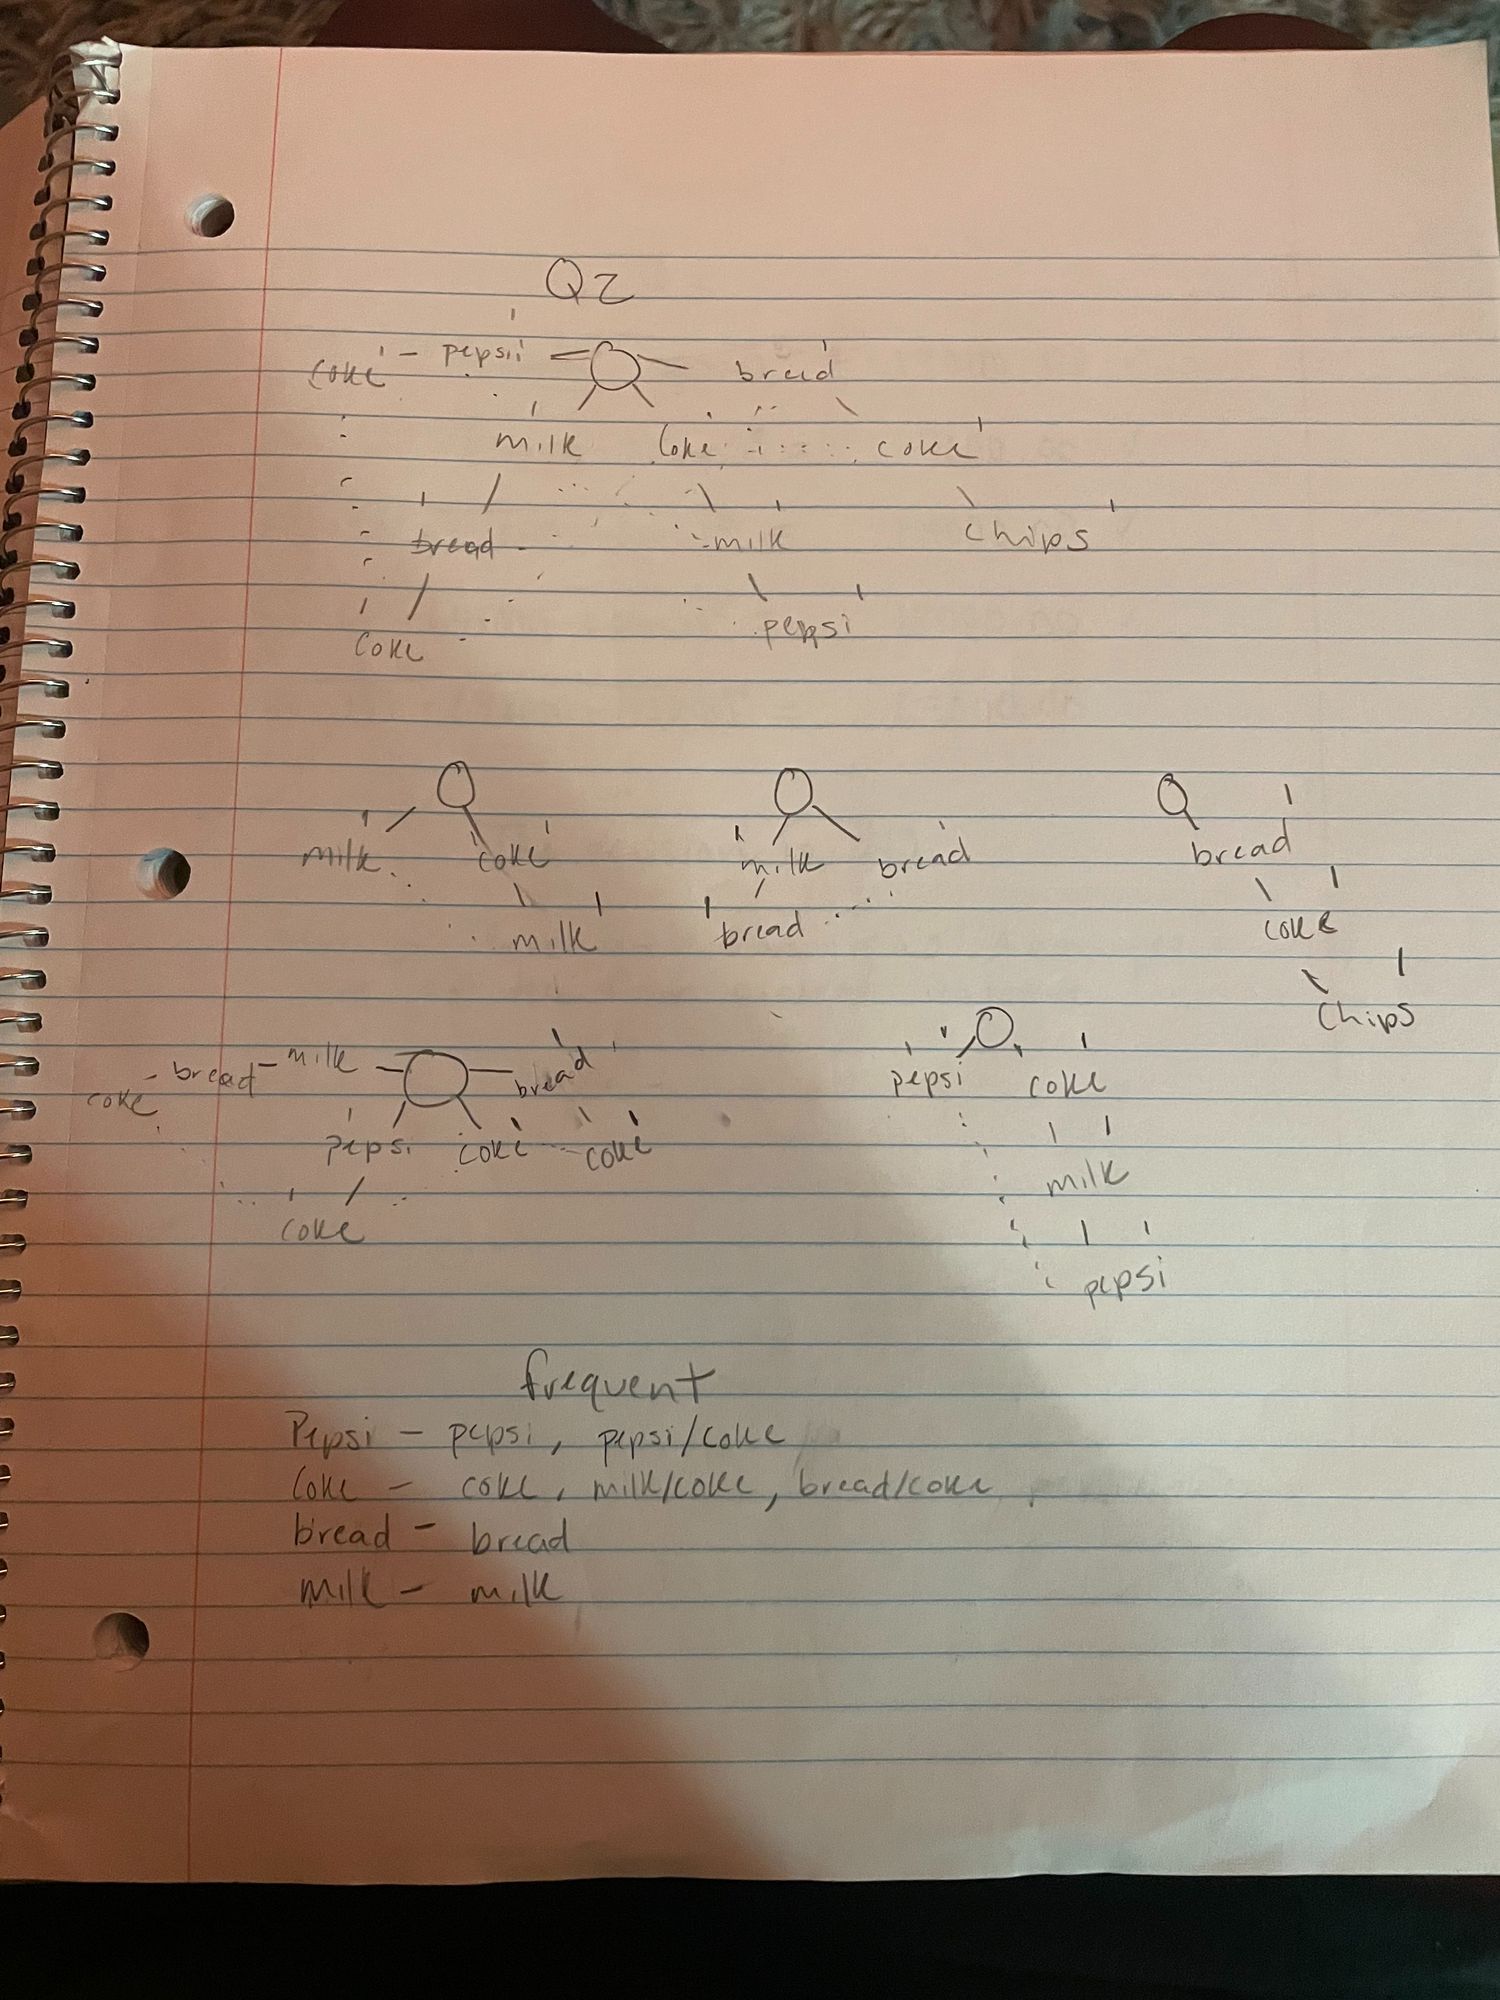 Q2
coke - pepsi bread
milk coke coke
bread milk chips
coke pepsi
milk coke milk bread bread
milk bread coke
chips
coke - bread - milk bread pepsi coke
pepsi coke coke milk
coke pepsi
frequent
Pepsi - pepsi, pepsi/coke
Coke - coke, milk/coke, bread/coke
bread - bread
milk - milk